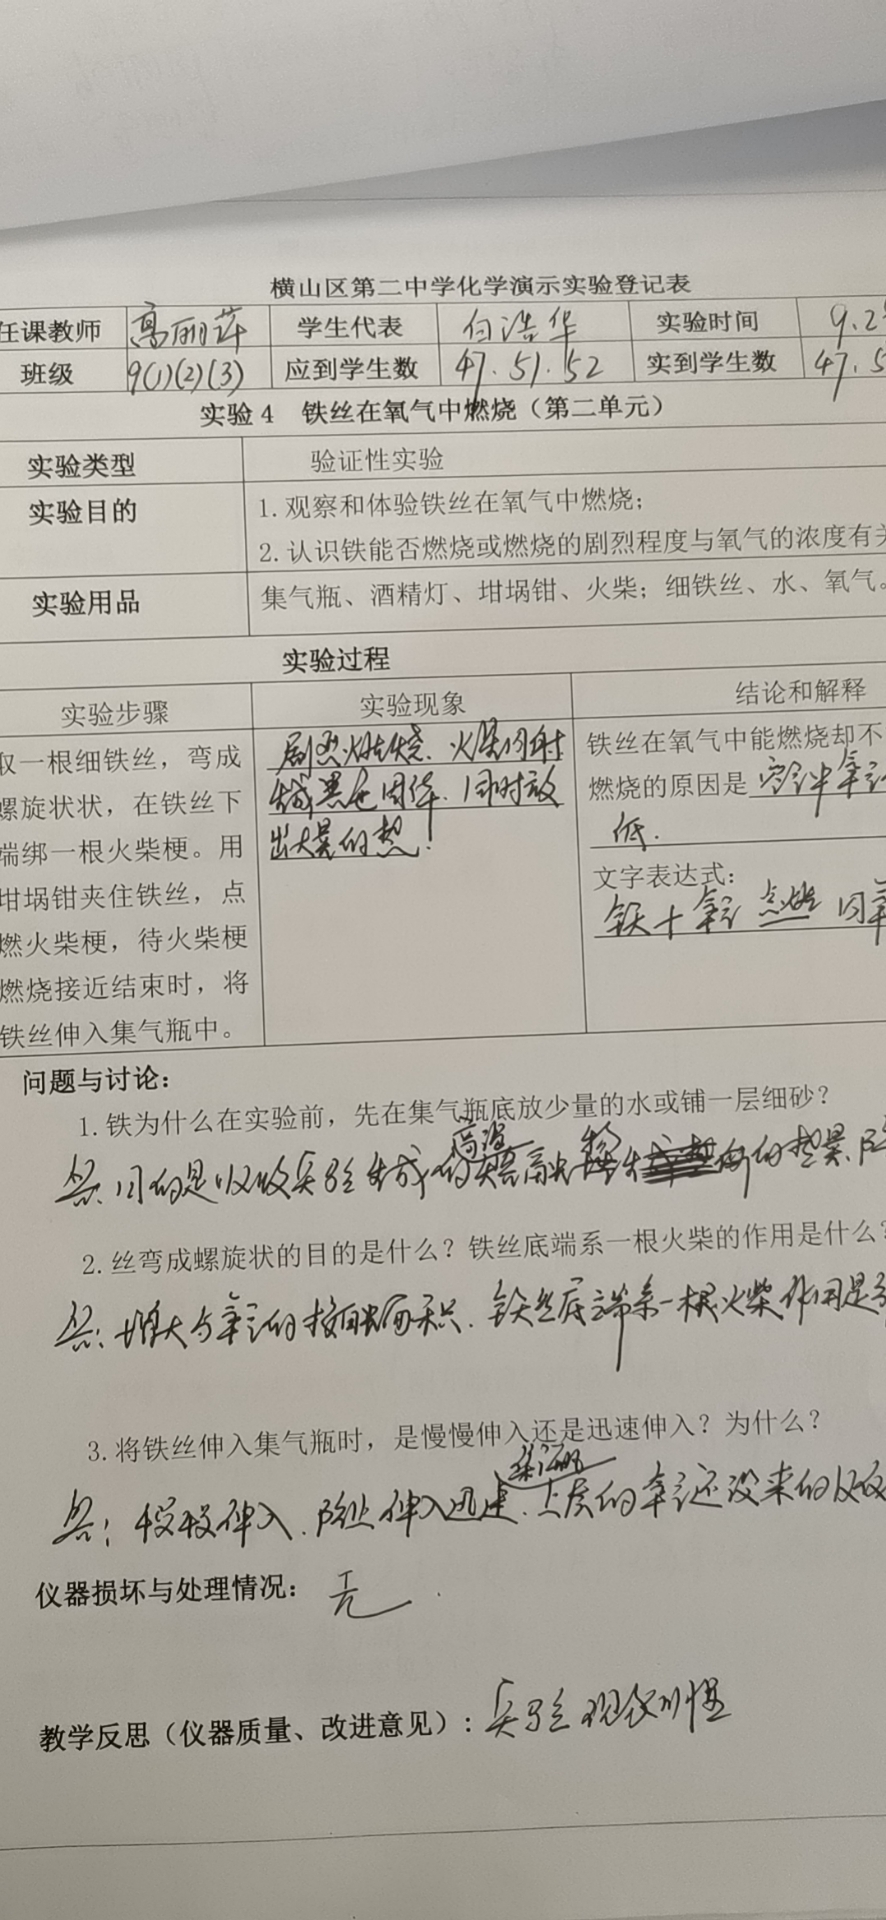 横山区第二中学化学演示实验登记表
任课教师 高丽萍 学生代表 白浩华 实验时间 9.2
班级 9(1)(2)(3) 应到学生数 47.51.52 实到学生数 47.5
实验4 铁丝在氧气中燃烧（第二单元）
实验类型 验证性实验
实验目的 1.观察和体验铁丝在氧气中燃烧；
2.认识铁能否燃烧或燃烧的剧烈程度与氧气的浓度有关
实验用品 集气瓶、酒精灯、坩埚钳、火柴；细铁丝、水、氧气。
实验过程
实验步骤 实验现象 结论和解释
取一根细铁丝，弯成
螺旋状状，在铁丝下
端绑一根火柴梗。用
坩埚钳夹住铁丝，点
燃火柴梗，待火柴梗
燃烧接近结束时，将
铁丝伸入集气瓶中。
剧烈燃烧、火星四射
生成黑色固体，同时放
出大量的热！
铁丝在氧气中能燃烧却不
燃烧的原因是 空气中氧气
低.
文字表达式：
铁+氧气 点燃 四氧
问题与讨论：
1.铁为什么在实验前，先在集气瓶底放少量的水或铺一层细砂？
答：目的是吸收实验生成的高温熔融物 的热量，防
2.丝弯成螺旋状的目的是什么？铁丝底端系一根火柴的作用是什么？
答：增大与氧气的接触面积.铁丝底端系一根火柴作用是
3.将铁丝伸入集气瓶时，是慢慢伸入还是迅速伸入？为什么？
答：慢慢伸入.防止伸入迅速.集气瓶上层的氧气还没来的及
仪器损坏与处理情况： 无.
教学反思（仪器质量、改进意见）：实验现象明显